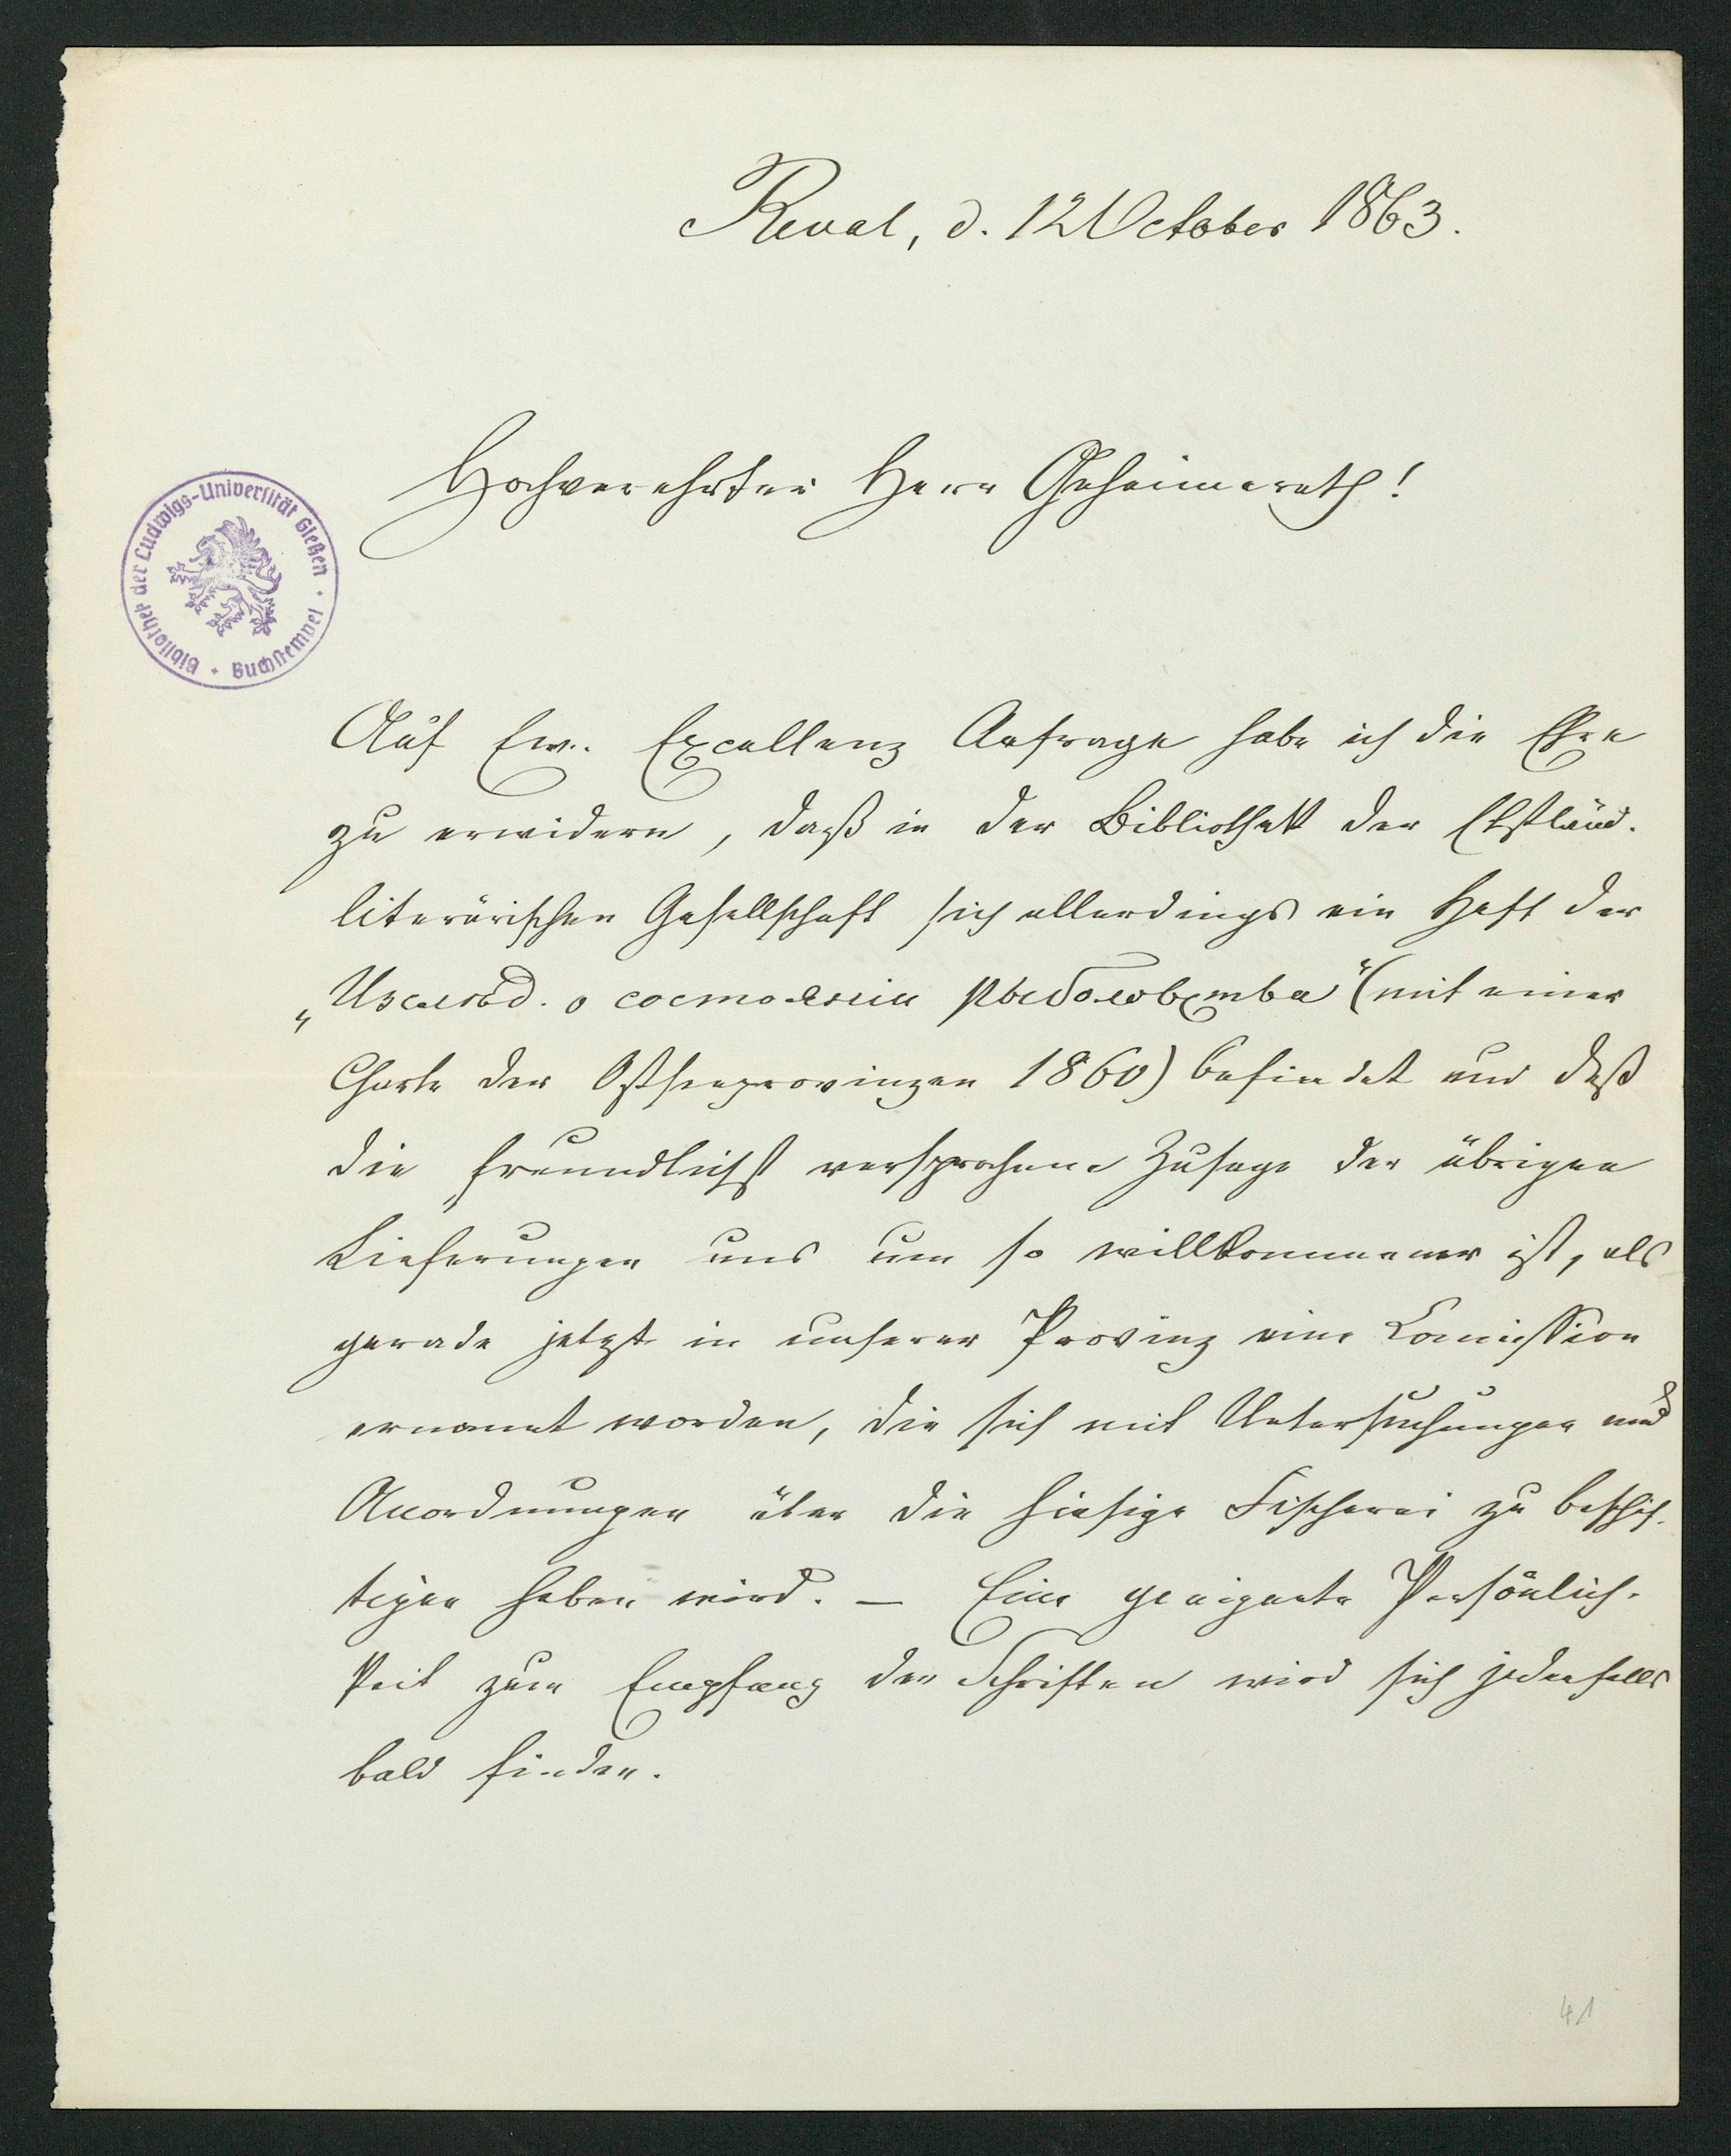 Reval, d. 12 October 1863.
Hochverehrter Herr Geheimerath!
Bibliothek der Ludwigs-Universität Gießen · Buchstempel ·
Auf Ew. Excellenz Anfrage habe ich die Ehre
zu erwidern, daß in der Bibliothek der Ehstländ.
literärischen Gesellschaft sich allerdings ein Heft der
„Изслѣд. о состоянiи рыболовства“ (mit einer
Charte der Ostseeprovinzen 1860) befindet und daß
die freundlichst versprochene Zusage der übrigen
Lieferungen uns um so willkommener ist, als
gerade jetzt in unserer Provinz eine Commission
ernannt worden, die sich mit Untersuchungen und
Anordnungen über die hiesige Fischerei zu beschäf-
tigen haben wird. — Eine geeignete Persönlich-
keit zum Empfang der Schriften wird sich jedenfalls
bald finden.
41